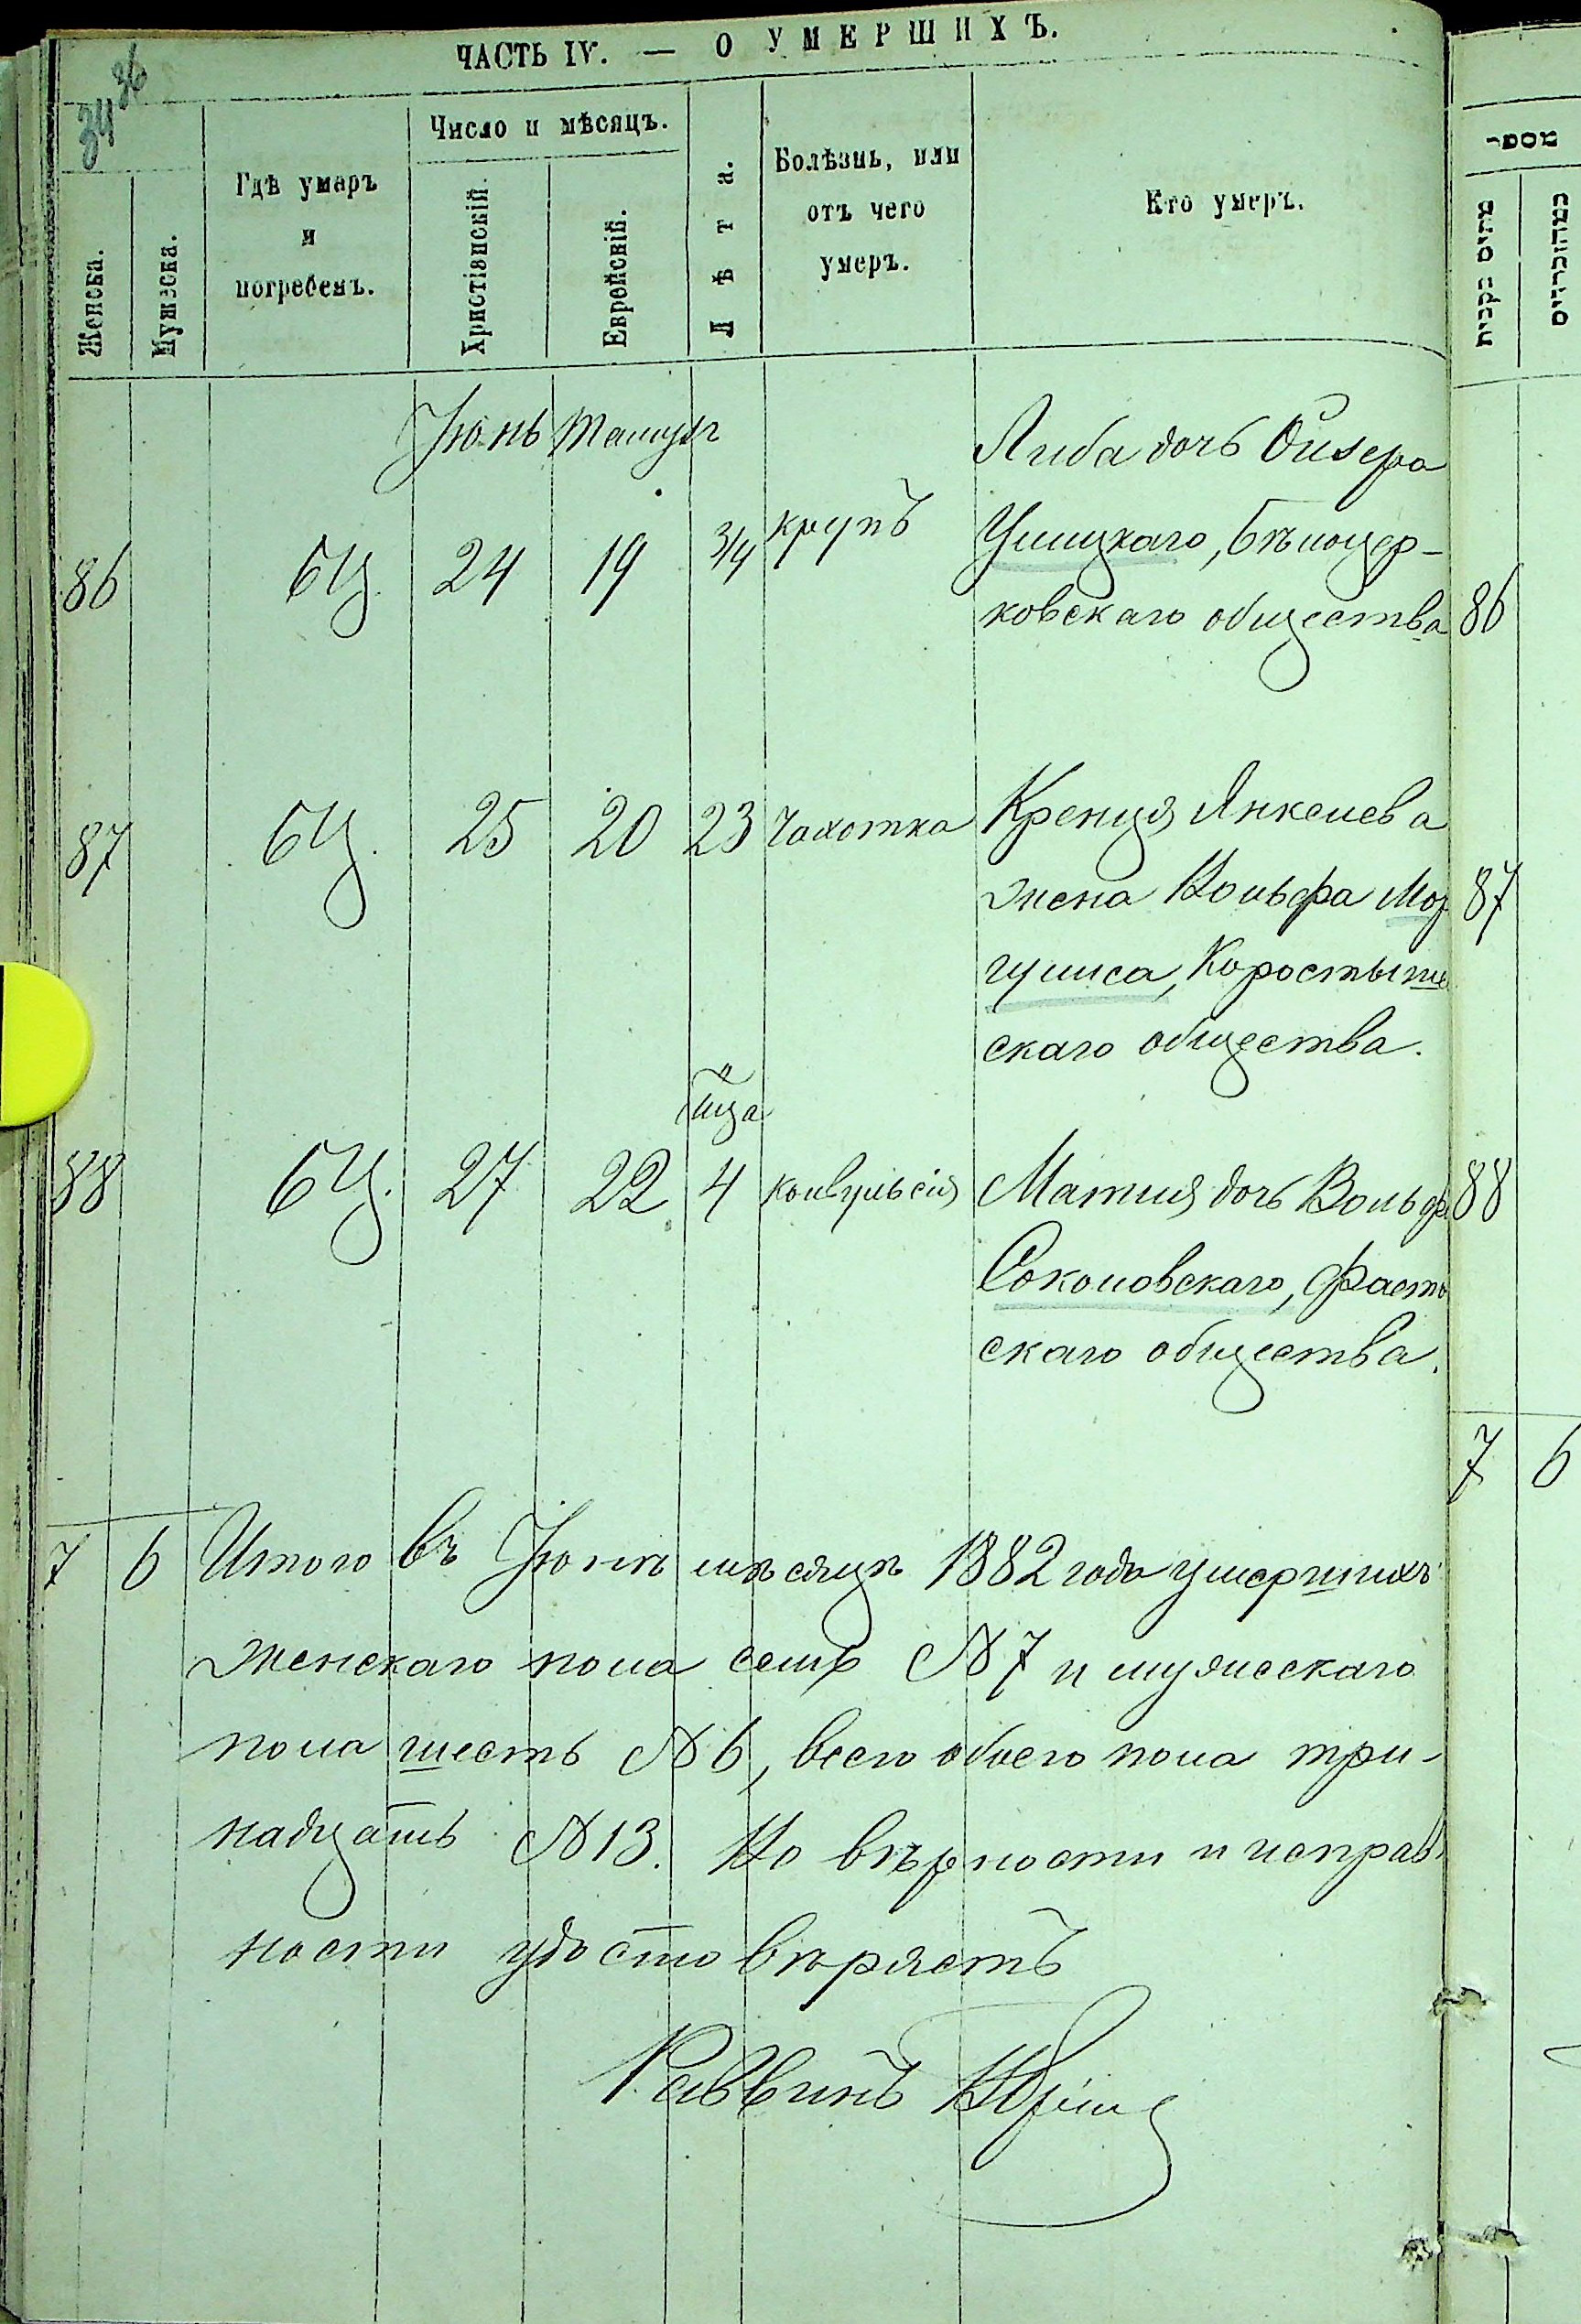 ЧАСТЬ IV. — О УМЕРШИХЪ.
34 36
Женска.
Мужеска.
Гдѣ умеръ
и
погребенъ.
Число и мѣсяцъ.
Христіянскій.
Еврейскій.
Лѣта.
Болѣзнь, или
отъ чего
умеръ.
Кто умеръ.
מספר
Іюнь Тамузъ
86 БЦ. 24 19 3/4 крупъ
Либа дочь Ойзера
Ушицкаго, Бѣлоцер-
ковскаго общества
86
87 БЦ. 25 20 23 Чахотка
Кренця Янкелева
жена Вольфа Мар
гулиса, Коростыше
скаго общества.
87
мца
88 БЦ. 27 22 4 конвульсія
Матля дочь Вольф
Соколовскаго, Фасто
скаго общества.
88
7 6
7 6 Итого въ Іюнѣ мѣсяцѣ 1882 года умершихъ
женскаго пола семь № 7 и мужескаго
пола шесть № 6, всего обоего пола три-
надцать № 13. Но вѣрности и исправ
ности удостовѣряетъ
Раввинъ